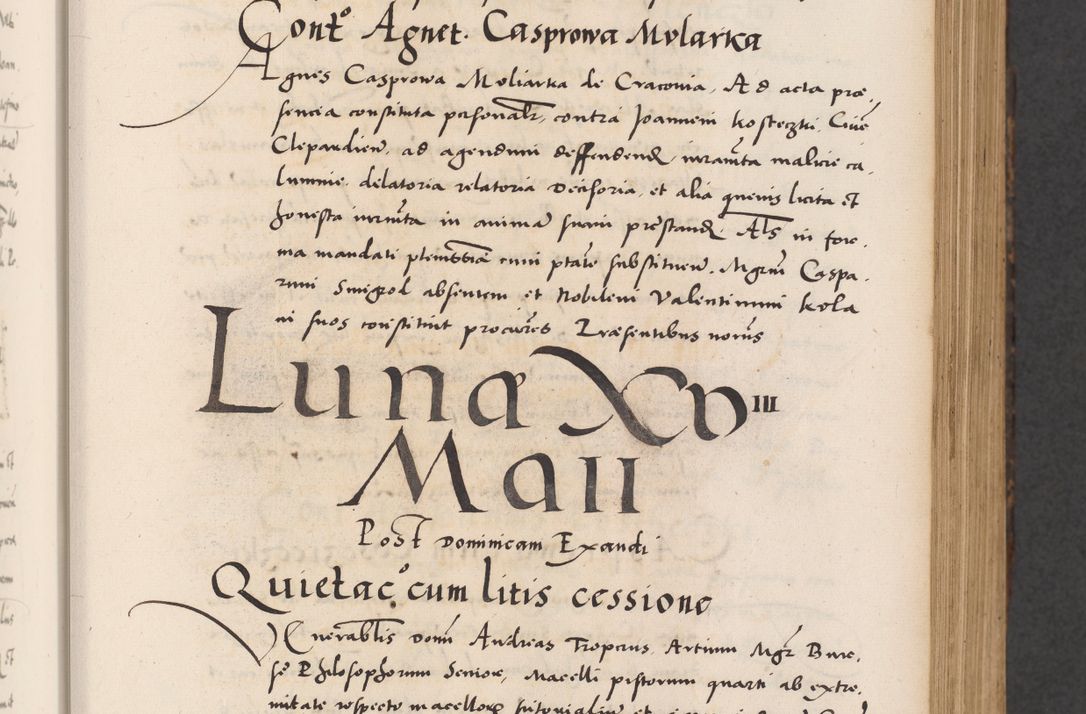 Cont° Agnet. Casprowa Mvlarka
Agnes Casprowa Muliarka de Cracovia, Ad acta præ,
sencia constituta personalr, contra Joannem Kosteczki, Civē
Clepardien̄, ad agendum deffendend, iuramta malicie ca,
lumnie, delatoria relatoria decisoria, et alia quevis licita et
honesta iurmta in animā suam prestand. Als in for,
ma mandati plenissīa cum ptāte substituen̄. Mgrm Caspa,
rum Smigol absentem et Nobilem Valentinum Kola
ni suos constituit procures Præsentibus notris
Lunæ XVIII
Maii
Post Dominicam Exaudi
Quietac° cum litis cessione
Venerablis Domn Andreas Troperus, Artium Mgr Bur,
se Philosophorum Senior, Macelli pistorum quarti ab extre,
mitate respecto macellor sutorialium et